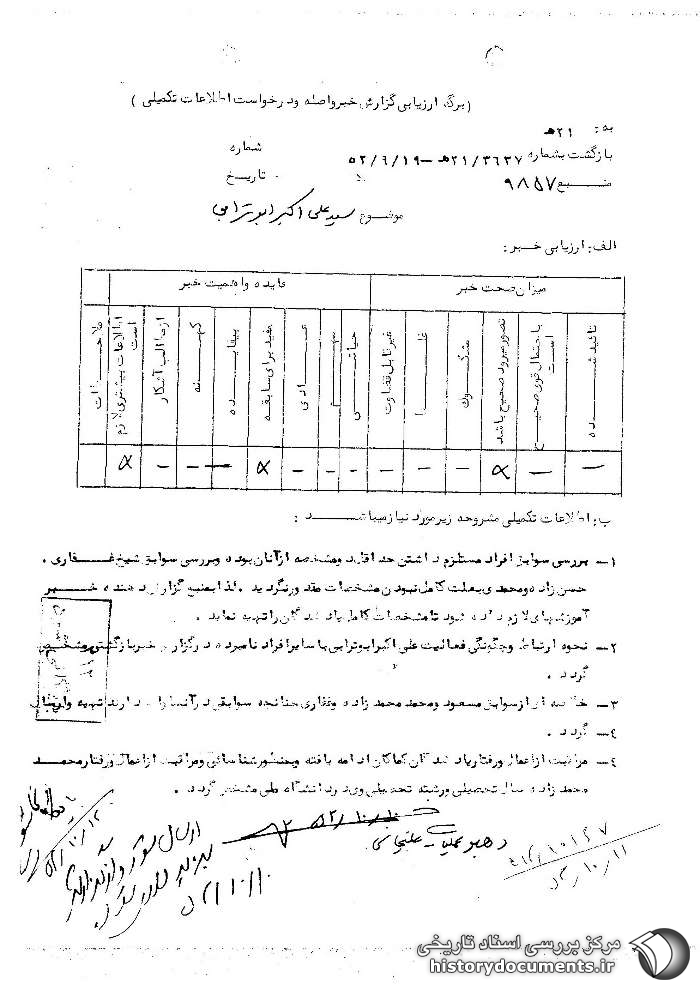 (برگ ارزیابی گزارش خبر واصله و درخواست اطلاعات تکمیلی)
به: ۲۱ هـ
شماره
بازگشت بشماره ۲۱/۳۶۳۷ هـ - ۵۲/۹/۱۹
تاریخ
منبع ۹۸۵۷
موضوع سید علی اکبر ابوترابی
الف: ارزیابی خبر:
میزان صحت خبر
فایده و اهمیت خبر
تائید شده
باحتمال قوی صحیح است
تصور میرود صحیح باشد
مشکوک
غلط
غیر قابل قضاوت
حیاتی
مهم
عادی
مفید برای سابقه
بیفایده
کهنه
از مطالب آشکار
اطلاعات بیشتری لازم است
ملاحظات
ب: اطلاعات تکمیلی مشروحه زیر مورد نیاز میباشد:
۱- بررسی سوابق افراد مستلزم داشتن حداقل دو مشخصه از آنان بوده و بررسی سوابق شیخ غفاری،
حسن زاده و محمدی بعلت کامل نبودن مشخصات مقدور نگردید. لذا بمنبع گزارش دهنده خبر
آموزشهای لازم داده شود تا مشخصات کامل یاد شدگان را تهیه نماید.
۲- نحوه ارتباط و چگونگی فعالیت علی اکبر ابوترابی با سایر افراد نامبرده در گزارش خبر بازگشتی مشخص
گردد.
۳- خلاصه ای از سوابق مسعود و محمد محمد زاده و غفاری چنانچه سوابقی در آنسازمان دارند تهیه و ارسال
۴- گردد.
۴- مراقبت از اعمال و رفتار یاد شدگان کماکان ادامه یافته و بمنظور شناسائی و مراقبت از اعمال و رفتار محمد
محمد زاده سال تحصیلی و رشته تحصیلی وی در دانشگاه ملی مشخص گردد.
رهبر عملیات
۵۲/۱۰/۱۰
ارسال شود
۵۲/۱۰/۱۰
۵۲/۱۰/۱۱
مرکز بررسی اسناد تاریخی
historydocuments.ir